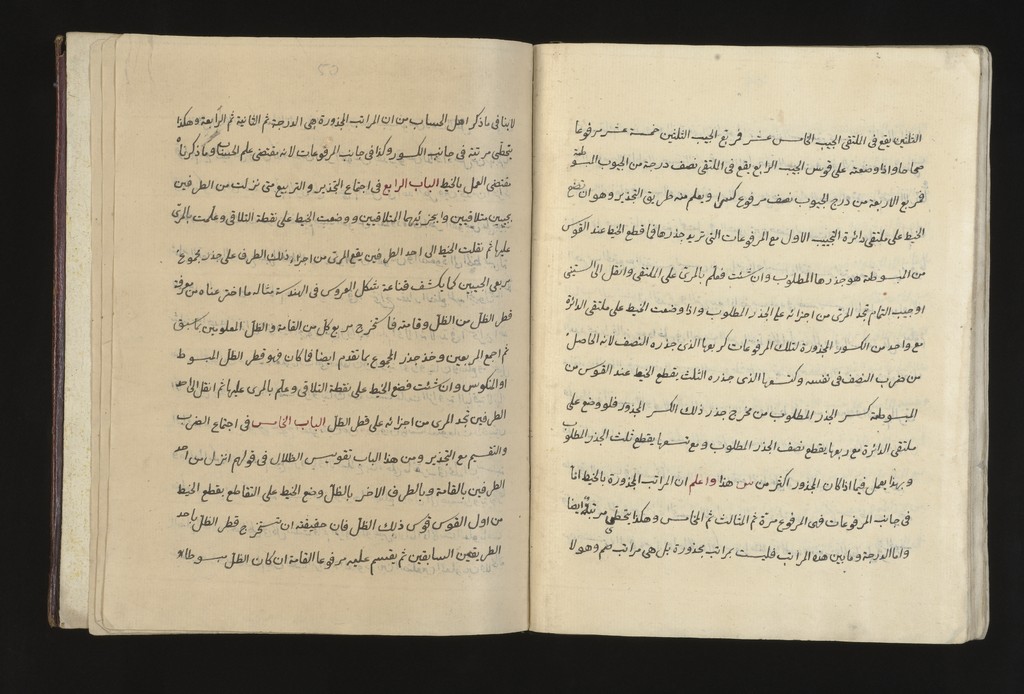 الثلثين يقع في الملتقى الجيب الخامس عشر فربع الجيب الثلثين خمسة عشر مرفوعا
صحاحا واذا وضعته على قوس الجيب الرابع يقع في الملتقى نصف درجة من الجيوب المبسوطة
فتربيع الاربعة من درج الجيوب نصف مرفوع كسرا ويعلم منه طريق التجذير وهو ان تضع
الخيط على ملتقى دائرة التجييب الاول مع المرفوعات التي تريد جذرها فما قطع الخيط عند القوس
من المبسوطة هو جذرها المطلوب وان شئت فعلم بالمرى على الملتقى وانقل الى الستيني
او جيب التمام تجد المرى من اجزائه على الجذر المطلوب واذا وضعت الخيط على ملتقى الدائرة
مع واحد من الكسور المجذورة لتلك المرفوعات كربعها الذي جذره النصف لانه الحاصل
من ضرب النصف في نفسه وكتسعها الذي جذره الثلث يقطع الخيط عند القوس من
المبسوطة كسر الجذر المطلوب من مخرج جذر ذلك الكسر المجذور فلو وضع على
ملتقى الدائرة مع ربعها يقطع نصف الجذر المطلوب ومع تسعها يقطع ثلث الجذر المطلوب
وبهذا يعمل فيما اذا كان المجذور اكثر من س هذا واعلم ان المراتب المجذورة بالخيط اما
في جانب المرفوعات فهي المرفوع مرة ثم الثالث ثم الخامس وهكذا بتخطي مرتبة ايضا
واما الدرجة وما بين هذه المراتب فليست بمراتب مجذورة بل هي مراتب صم وهو لا
لا ينافي ما ذكر اهل الحساب من ان المراتب المجذورة هي الدرجة ثم الثانية ثم الرابعة وهكذا
بتخطي مرتبة في جانب الكسور وكذا في جانب المرفوعات لانه مقتضى علم الحساب وما ذكرناه
مقتضى العمل بالخيط الباب الرابع في اجتماع التجذير والتربيع متى نزلت من الطرفين
بجيبين متلاقيين وابجزئيهما المتلاقيين ووضعت الخيط على نقطة التلاقي وعلمت بالمرى
عليها ثم نقلت الخيط الى احد الطرفين يقع المرى من اجزاء ذلك الطرف على جذر مجموع
مربعي الجيبين كما يكشف قناعه شكل العروس في الهندسة مثاله ما اخترعناه من معرفة
قطر الظل من الظل وقامته فاستخرج مربع كل من القامة والظل المعلومين بما سبق
ثم اجمع المربعين وخذ جذر المجموع بما تقدم ايضا فما كان فهو قطر الظل المبسوط
او المنكوس وان شئت فضع الخيط على نقطة التلاقي وعلم بالمرى عليها ثم انقل الى احد
الطرفين تجد المرى من اجزائه على قطر الظل الباب الخامس في اجتماع الضرب
والتقسيم مع التجذير ومن هذا الباب تقويس الظلال في قولهم انزل من احد
الطرفين بالقامة وبالطرف الاخر بالظل وضع الخيط على التقاطع يقطع الخيط
من اول القوس قوس ذلك الظل فان حقيقته ان تستخرج قطر الظل باحد
الطريقين السابقين ثم يقسم عليه مرفوعا القامة ان كان الظل مبسوطا